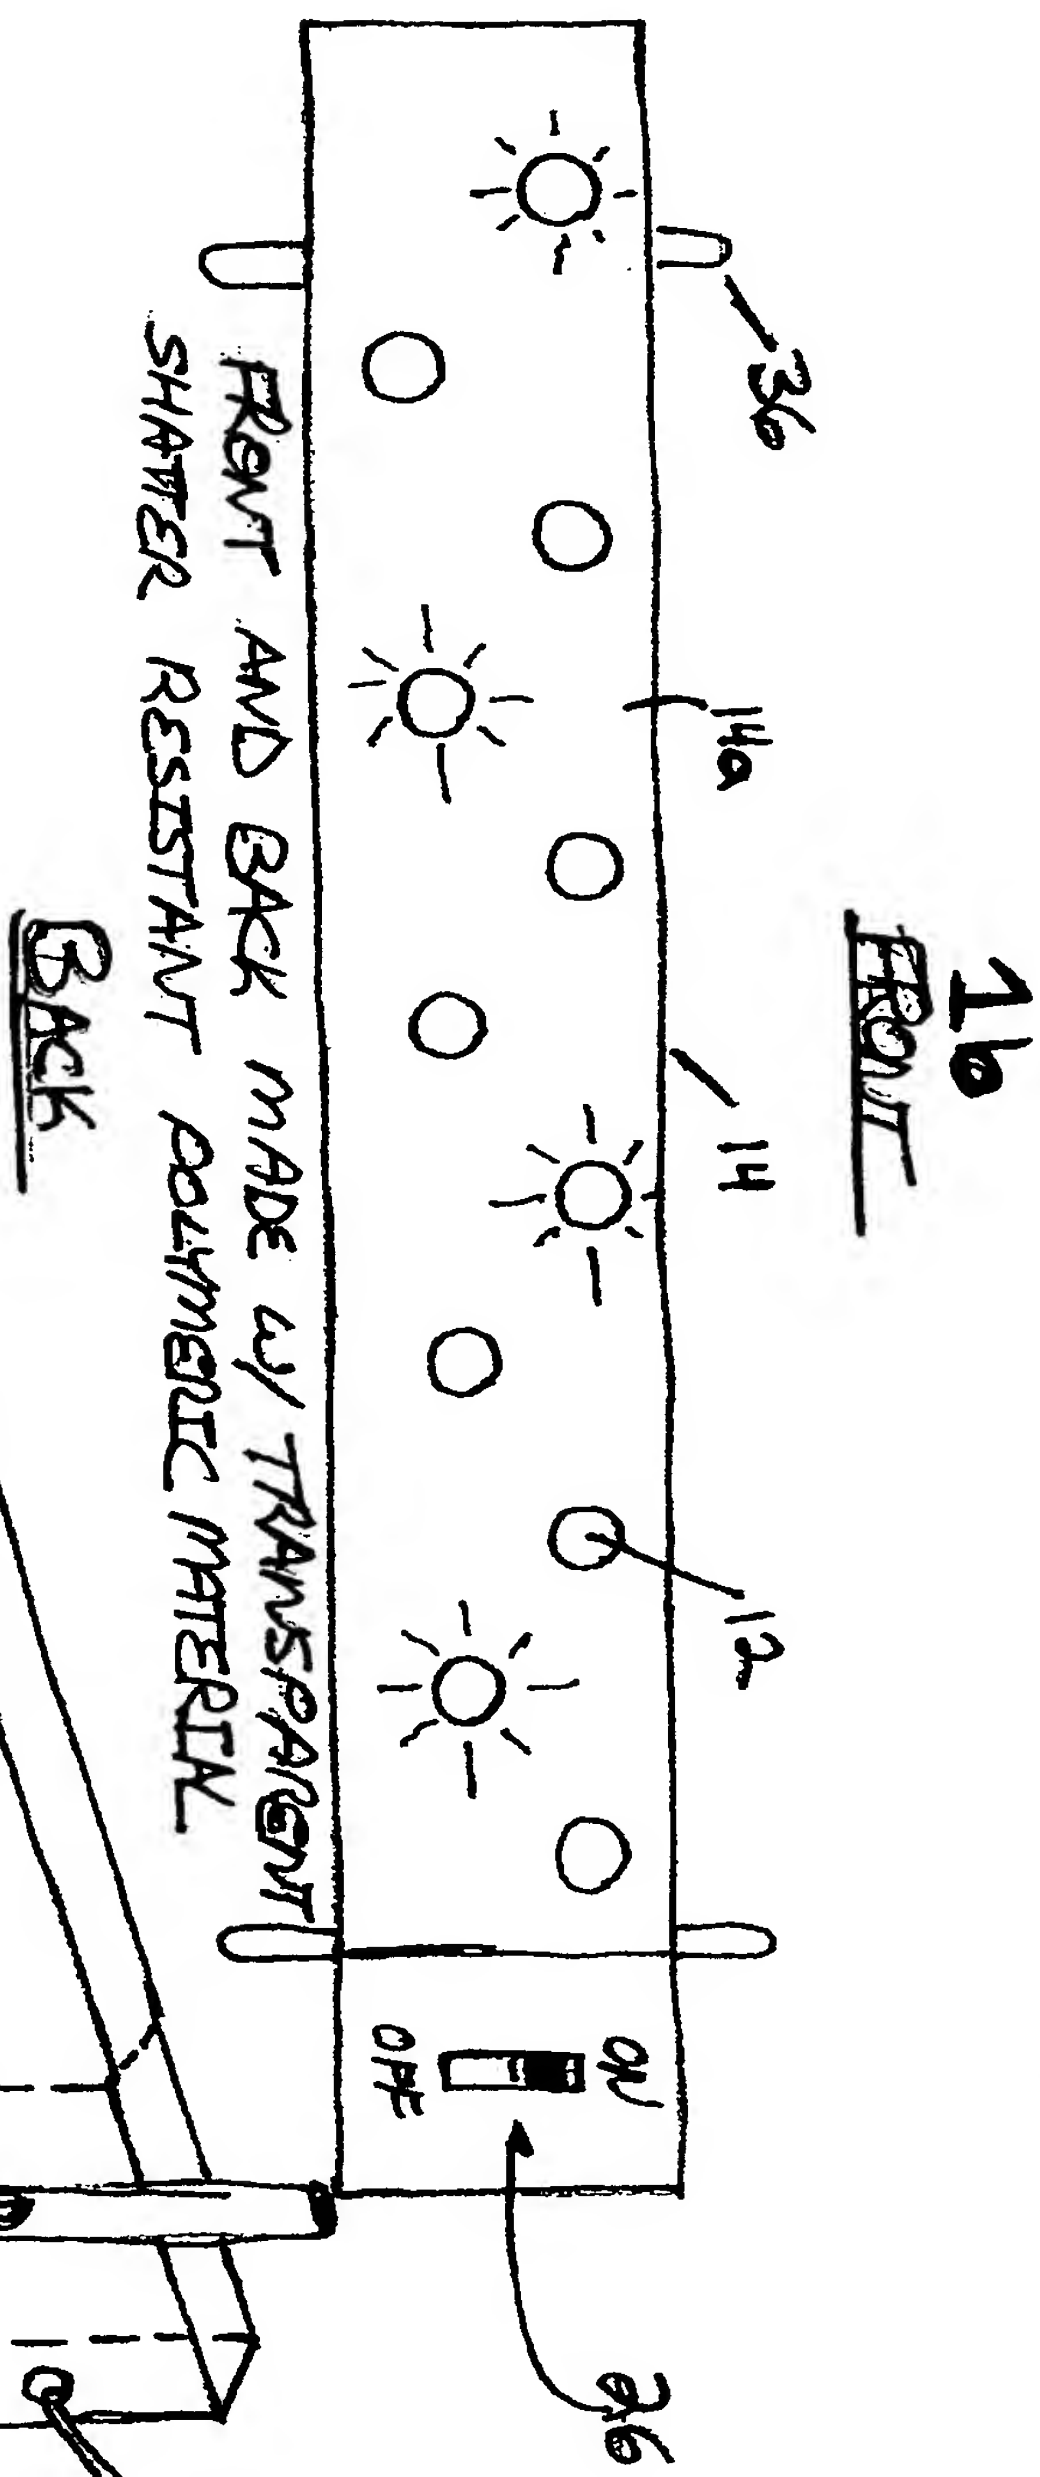 1b
FRONT
36
14a
14
12
ON
OFF
26
FRONT AND BACK MADE W/ TRANSPARENT
SHATTER RESISTANT POLYMERIC MATERIAL
BACK